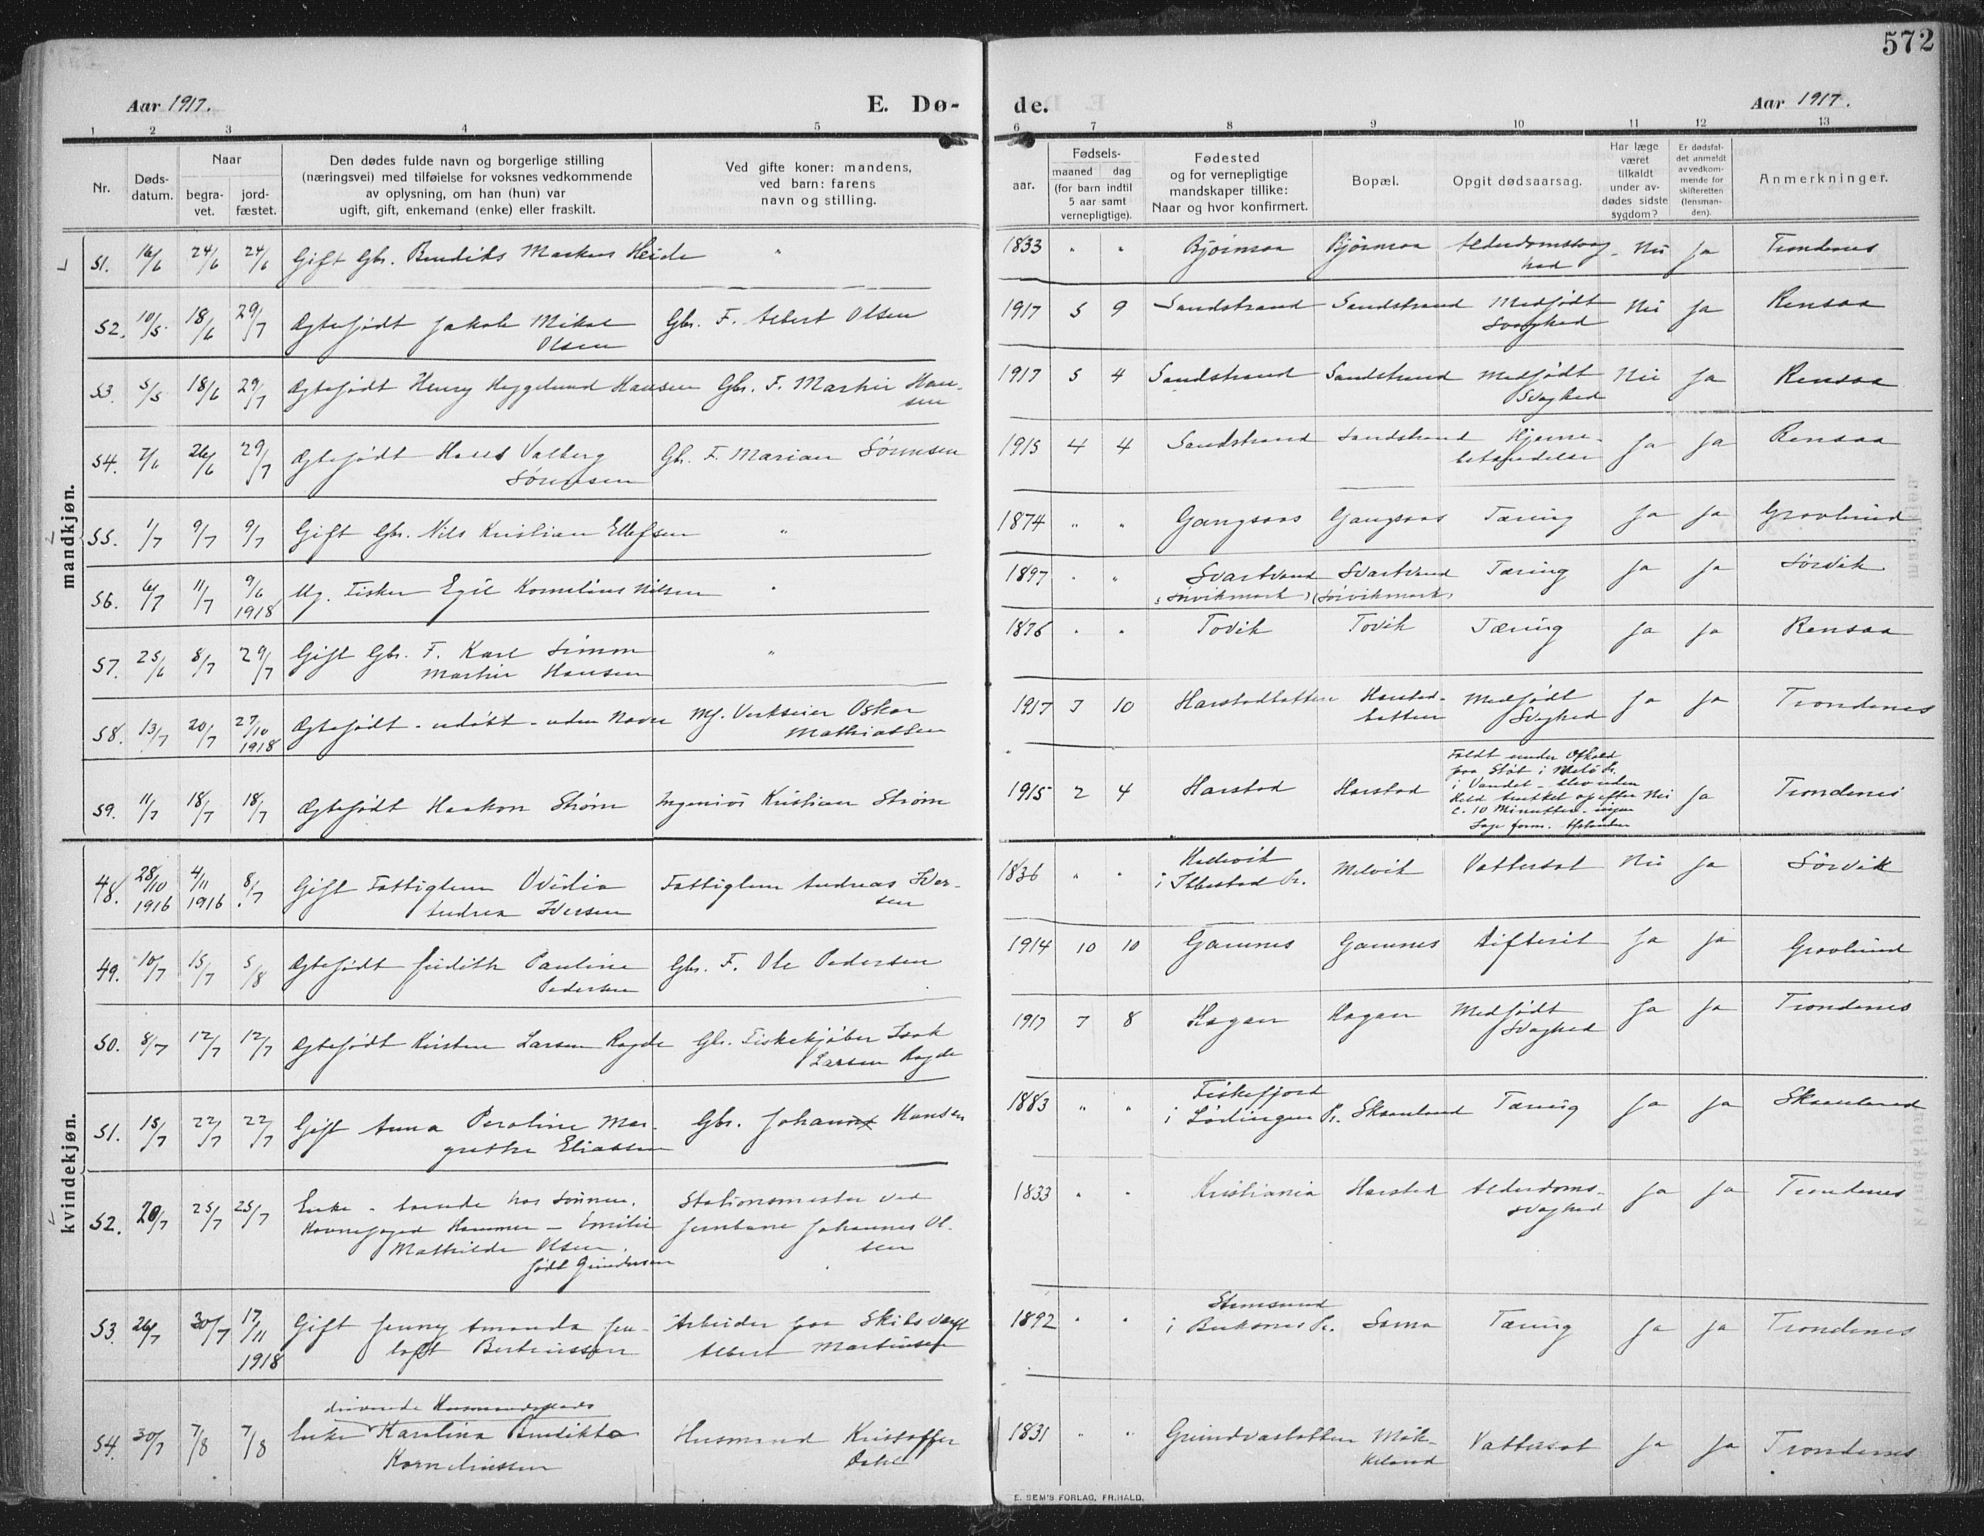 572
Aar 1917.
E. Dø-
de.
Aar 1917.
1 2 3 4 5 6 7 8 9 10 11 12 13
Nr.
Døds-
datum.
Naar
begra-
vet.
jord-
fæstet.
Den dødes fulde navn og borgerlige stilling
(næringsvei) med tilføielse for voksnes vedkommende
av oplysning, om han (hun) var
ugift, gift, enkemand (enke) eller fraskilt.
Ved gifte koner: mandens,
ved barn: farens
navn og stilling.
Fødsels-
aar.
maaned dag
(for barn indtil
5 aar samt
vernepligtige).
Fødested
og for vernepligtige
mandskaper tillike:
Naar og hvor konfirmert.
Bopæl.
Opgit dødsaarsag.
Har læge
været
tilkaldt
under av-
dødes sidste
sygdom?
Er dødsfal-
det anmeldt
av vedkom-
mende for
skifteretten
(lensman-
den).
Anmerkninger.
mandkjøn.
51. 16/6 24/6 24/6 Gift Gbr. Bendiks Markus Heide " 1833 " " Bjørnraa Bjørnraa Alderdomssvag-
hed Nei Ja Trondenes
52. 10/5 18/6 29/7 Ægtefødt Jakob Mikal
Olsen Gbr. F. Albert Olsen 1917 5 9 Sandstrand Sandstrand Medfødt
Svaghed Nei Ja Rensaa
53. 5/5 18/6 29/7 Ægtefødt Henry Heggelund Hansen Gbr. F. Martin Han-
sen 1917 5 4 Sandstrand Sandstrand Medfødt
Svaghed Nei Ja Rensaa
54. 7/6 26/6 29/7 Ægtefødt Hans Valberg
Sørensen Gb. F. Marian Sørensen 1915 4 4 Sandstrand Sandstrand Hjerne-
betændelse Ja Ja Rensaa
55. 1/7 9/7 9/7 Gift Gbr. Nils Kristian Ellefsen " 1874 " " Gangsaas Gangsaas Tæring Ja Ja Gravlund
56. 6/7 11/7 9/6
1918 Ug. Fisker Egil Kornelius Nilsen " 1897 " " Svartvand
(Sørvikmark) Svartvand
(Sørvikmark) Tæring Ja Ja Sørvik
57. 25/6 8/7 29/7 Gift Gbr. F. Karl Simon
Martin Hansen " 1876 " " Tovik Tovik Tæring Ja Ja Rensaa
58. 13/7 20/7 27/10
1918 Ægtefødt - udøbt - uden Navn Mf. Verkseier Oskar
Mathiassen 1917 7 10 Harstadbotten Harstad-
botten Medfødt
Svaghed Ja Ja Trondenes
59. 11/7 18/7 18/7 Ægtefødt Haakon Strøm Ingeniør Kristian Strøm 1915 2 4 Harstad Harstad Faldt under Ophold
paa Støt i Melø Pr.
i Vandet - blev uden
Held trukket op efter
c. 10 Minutter - ingen
Nei Ja Trondenes
kvindekjøn.
48. 28/10
1916 4/11
1916 8/7 Gift Fattiglem Ovidia
Andrea Iversen Fattiglem Andreas Iver-
sen 1836 " "
i Ibbestad Pr. Melvik Vattersot Nei Ja Sørvik
49. 10/7 15/7 5/8 Ægtefødt Judith Pauline
Pedersen Gbr. F. Ole Pedersen 1914 10 10 Gamnes Gamnes Difterit Ja Ja Gravlund
50. 8/7 12/7 12/7 Ægtefødt Kirsten Larsen Ragde Gb. Fiskekjøber Isak
Larsen Ragde 1917 7 8 Hagan Hagan Medfødt
Svaghed Ja Ja Trondenes
51. 15/7 22/7 22/7 Gift Anna Peroline Mar-
grethe Eliassen Gbr. Johan Hansen 1883 " " Fiskefjord
i Lødingen Pr. Skaanland Tæring Ja Ja Skaanland
52. 20/7 25/7 25/7 Enke - boende hos Sønnen,
Havnefoged Hammer - Emilie
Mathilde Olsen,
født Gundersen Stationsmester ved
Jernbane Johannes Ol-
sen 1833 " " Kristiania Harstad Alderdoms-
svaghed Ja Ja Trondenes
53 26/7 30/7 17/11
1918 Gift Jenny Amanda Jen-
toft Berteussen Arbeider paa Skibsverft
Albert Martinsen 1892 " " Stamsund
i Buksnes Pr. Sama Tæring Ja Ja Trondenes
54. 30/7 7/8 7/8 drivende Husmandsplads
Enke Karolina Bendikta
Korneliussen Husmand Kristoffer
Dahl 1831 " " Grundvasbotten Møk-
keland Vattersot Ja Ja Trondenes
E. SEM'S FORLAG, FR.HALD.